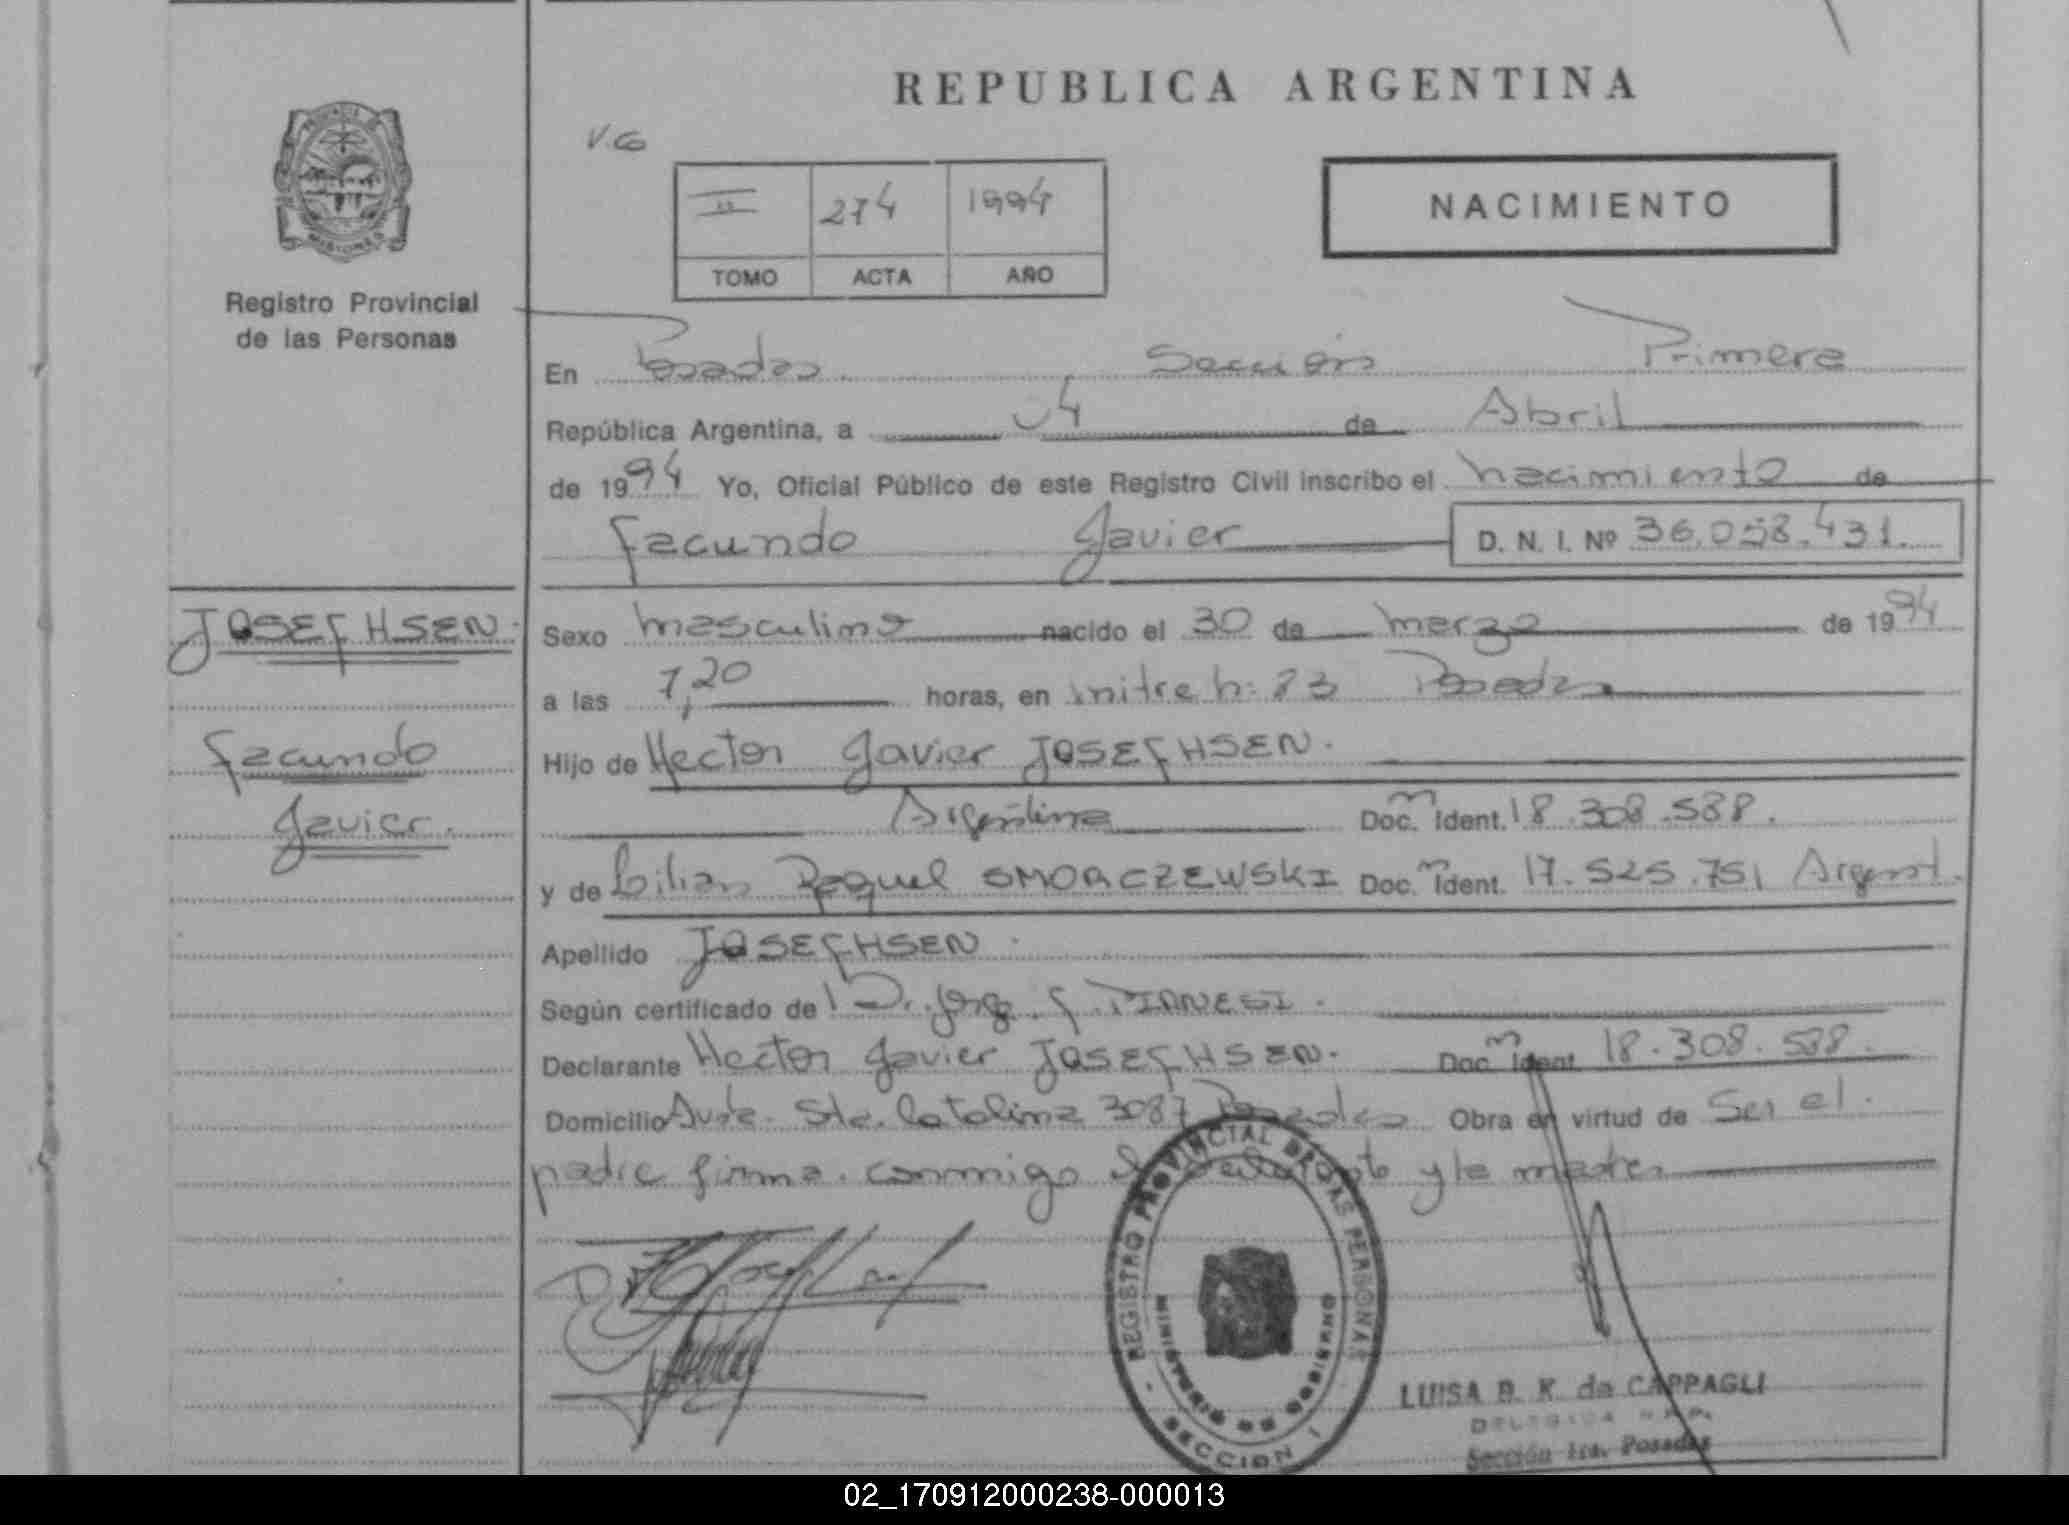 REPUBLICA ARGENTINA
PROVINCIA DE MISIONES
Registro Provincial
de las Personas
V.G
II 274 1994
TOMO ACTA AÑO
NACIMIENTO
En Posadas Sección Primera
República Argentina, a 04 de Abril
de 1994 Yo, Oficial Público de este Registro Civil inscribo el nacimiento de
Facundo Javier D. N. I. Nº 36.058.431.
JOSEFHSEN.
Facundo
Javier.
Sexo masculino nacido el 30 de marzo de 1994
a las 7,20 horas, en mitre n: 83 Posadas
Hijo de Hector Javier JOSEFHSEN.
Argentina Doc. Ident. 18.308.588.
y de Lilian Raquel SMORCZEWSKI Doc. Ident. 17.525.751 Argent.
Apellido JOSEFHSEN.
Según certificado de Dr. Jorge F PIRNESI.
Declarante Hector Javier JOSEFHSEN. Doc. Ident. 18.308.588.
Domicilio Avda. Sta. Catalina 3087 Posadas Obra en virtud de Ser el
padre firma conmigo el y la madre.
REGISTRO PROVINCIAL DE LAS PERSONAS
MINISTERIO DE GOBIERNO
SECCION I
LUISA B. K. de CAPPAGLI
DELEGADA R.P.P.
Sección 1ra. Posadas
02_170912000238-000013